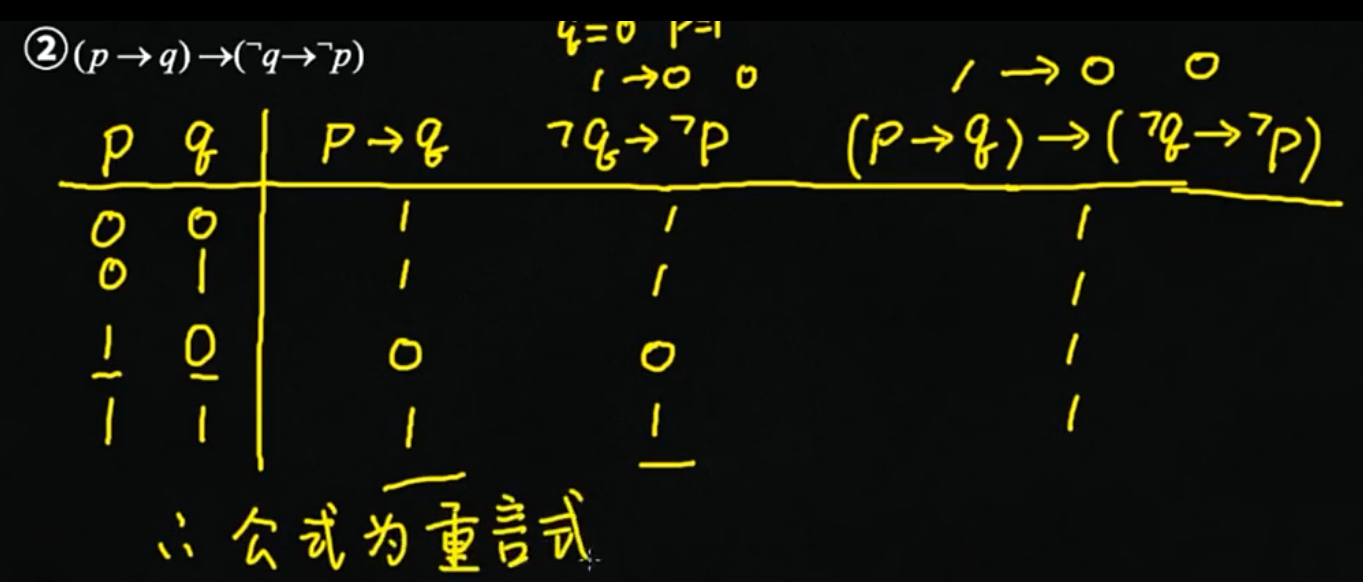 ②(p→q)→(¬q→¬p)
q=0 p=1
1→0 0
1→0 0
p q p→q ¬q→¬p (p→q)→(¬q→¬p)
0 0 1 1 1
0 1 1 1 1
1 0 0 0 1
1 1 1 1 1
∴公式为重言式